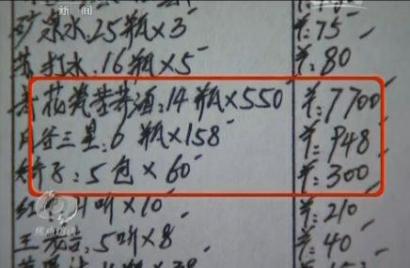 新闻
矿泉水:25瓶×3 ¥:75
苏打水:16瓶×5 ¥:80
花瓷 酒:14瓶×550 ¥:7700
三星:6瓶×158 ¥:948
5包×60 ¥:300
21听×10 ¥:210
王老吉:5听×8 ¥:40